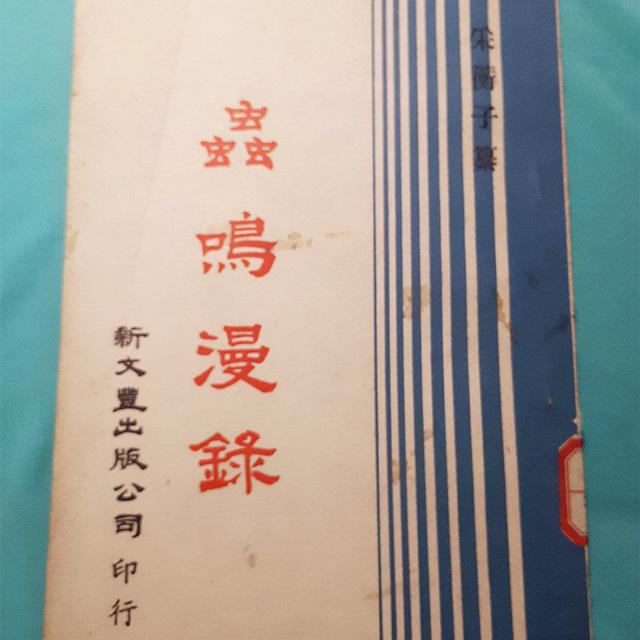 采蘅子纂
蟲鳴漫錄
新文豐出版公司 印行